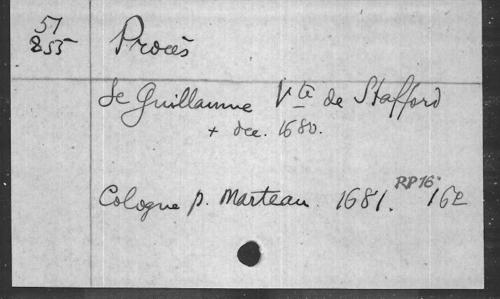 51
855
Procès
de Guillaume Vte de Stafford
+ dec. 1680.
Cologne p. Marteau. 1681. RP16. 16e